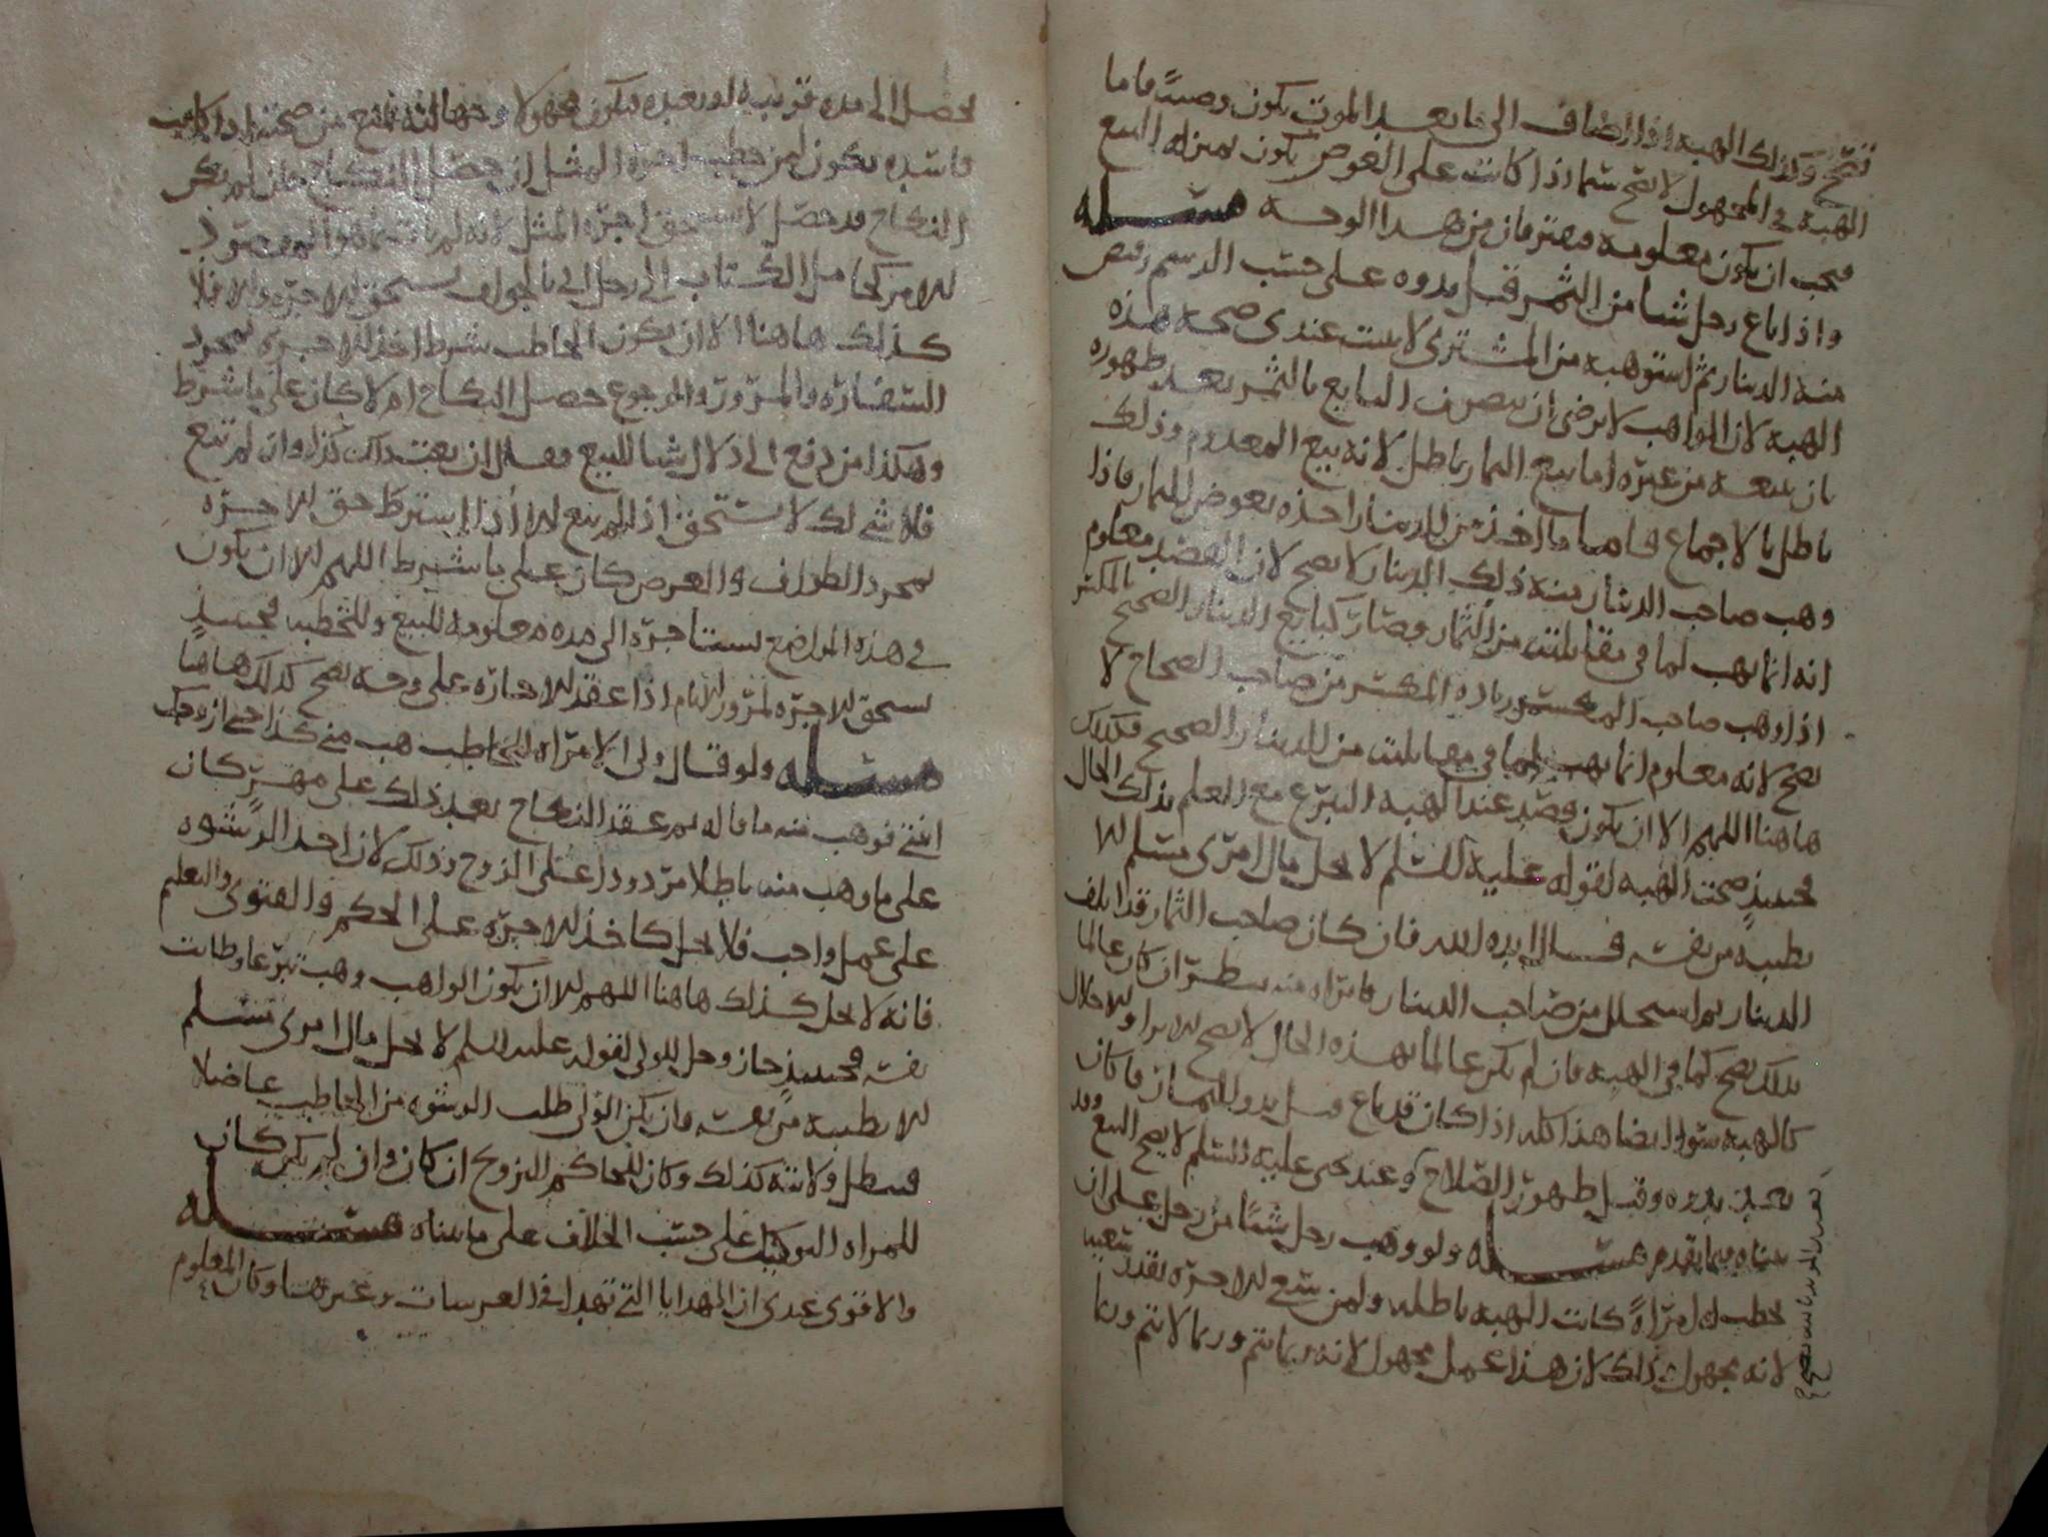 تصح وكذلك الهبة اذا اضاف الى ما بعد الموت يكون وصية فاما
الهبة في المجهول لا تصح سيما اذا كانت على العوض يكون بمنزله البيع
فيجب ان يكون معلومه فيفترقان من هذا الوجه مسئله
واذا باع رجل شيا من الثمر قبل بدوه على حسب الرسم وقبض
منه الدينار ثم استوهبه من المشترى لا يثبت عندى صحة هذه
الهبه لان الواهب لا يرضى ان يتصرف البايع بالثمر بعد ظهوره
بان يبيعه من غيره اما بيع الثمار باطل لانه بيع المعدوم وذلك
باطل بالاجماع فاما ما اخذ من الدينار اخذه بعوض الثمار فاذا
وهب صاحب الدينار منه ذلك الدينار لا يصح لان القصد معلوم
انه انما يهب لما في مقابلته من الثمار وصار كبايع الدينار الصحيح بالمكسر
اذا وهب صاحب المكسور زياده المكسر من صاحب الصحاح لا
يصح لانه معلوم انما يهب لما في مقابلته من الدينار الصحيح فكذلك
هاهنا اللهم الا ان يكون قصد عند الهبه التبرع مع العلم بذلك الحال
فحينيذ صحت الهبه لقوله عليه السلم لا يحل مال امرى مسلم الا
بطيبة من نفسه قال ايده الله فان كان صاحب الثمار قد اتلف
الدينار ثم استحل من صاحب الدينار فابراه منه ينظر ان كان عالما
بذلك يصح كما في الهبه فان لم يكن عالما بهذه الحال لا يصح الابرا والاحلال
كالهبه سوا ايضا هذا كله اذا كان قد باع قبل بدو الثمار فاما ان كان
بعد بدوه وقبل ظهور الصلاح وعند يحيى عليه السلم لا يصح البيع وقد
بيناه فيما تقدم مسئله ولو وهب رجل شيئا من رجل على ان
يخطب له امراة كانت الهبه باطله ولمن سعى الاجره بقدر سعيه
لانه مجهول وذلك لان هذا عمل مجهول لانه ربما تم وربما لا تتم وربما
يحصل الى مده قريبه او بعيده فيكون مجهولا وجهالته تمنع من صحته اذا كانت
فاسده يكون لمن خطب اجرة المثل ان حصل النكاح فان لم يكن
النكاح قد حصل لا يستحق اجره المثل لانه لم يات بما هو المقصود
الامر كحامل الكتاب الى رجل اتى بالجواب يستحق الاجره والا فلا
كذلك هاهنا الا ان يكون الخاطب شرط اخذ الاجره لمجرد
السفاره والمرور والرجوع حصل النكاح ام لا كان على ما شرط
وهكذا من دفع الى دلال شيا للبيع فقال ان بعت ذلك كذا وان لم تبع
فلا شى لك لا يستحق اذا لم يبع الا اذا اشترط حق الاجره
لمجرد الطواف والعرض كان على ما شرط اللهم الا ان يكون
في هذه المواضع يستاجره الى مده معلومه للبيع وللخطبه فحينيذ
يستحق الاجره لمرور الايام اذا عقد الاجاره على وجه يصح كذلك هاهنا
مسئله ولو قال ولى الامراه للخاطب هب منى كذا حتى ازوجك
ابنتى فوهب منه ما قاله ثم عقد النكاح بعد ذلك على مهر كان
على ما وهب منه باطلا مردودا على الزوج وذلك لان اخذ الرشوه
على عمل واجب فلا يحل كاخذ الاجره على الحكم والفتوى والتعليم
فانه لا يحل كذلك هاهنا اللهم الا ان يكون الواهب وهب تبرعا وطابت
نفسه فحينيذ جاز وحل للولى لقوله عليه السلم لا يحل مال امرى مسلم
الا بطيبه من نفسه فان يكن الولى طلب الرشوه من الخاطب عاضلا
فبطل ولايته كذلك وكان للحاكم التزويج ان كان وان لم يكن كان
للمراه التوكيل على حسب الخلاف على ما بيناه مسئله
والاقوى عندى ان الهدايا التى تهدا في العرسات وغيرها وكان المعلوم